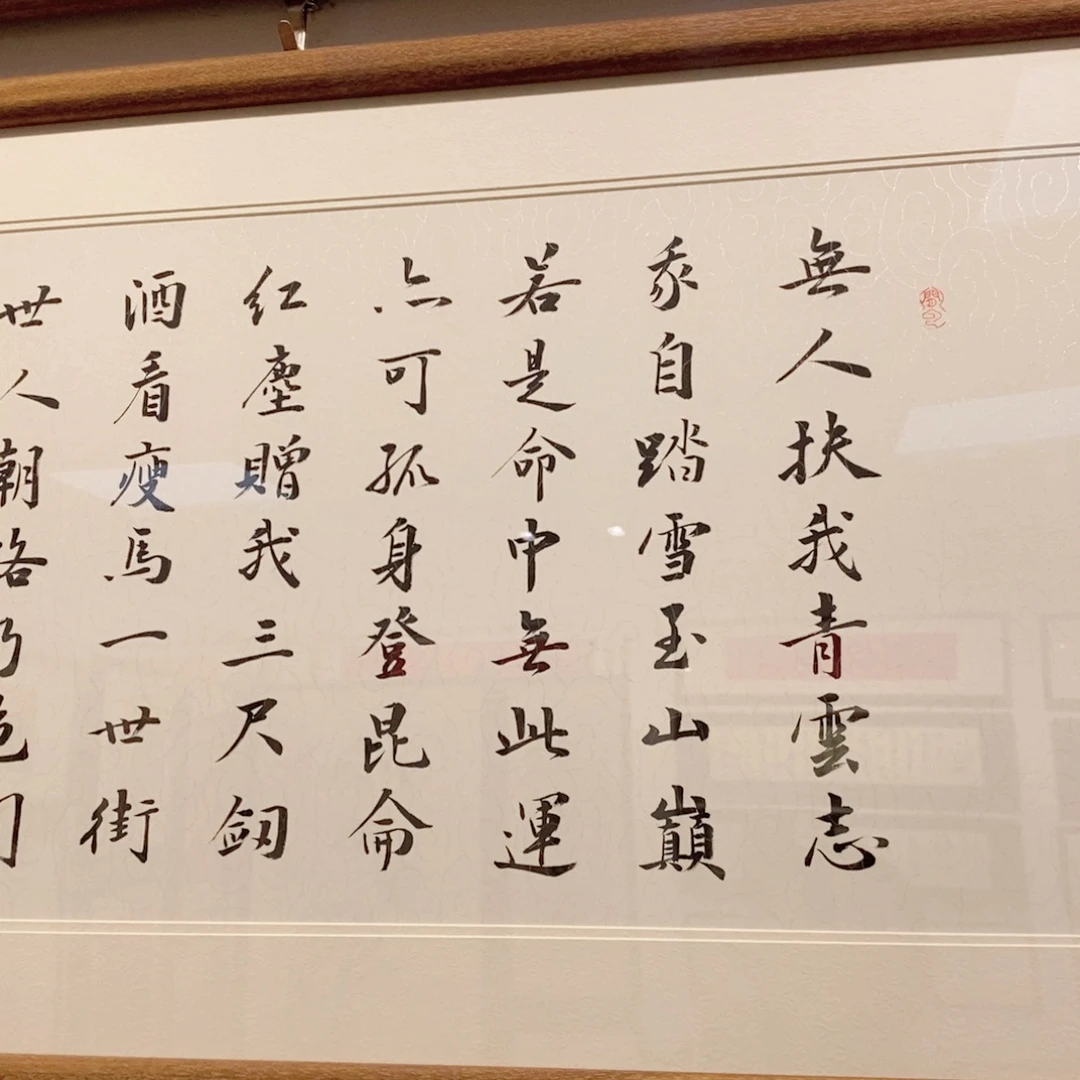 無人扶我青雲志
我自踏雪至山巔
若是命中無此運
亦可孤身登昆侖
紅塵贈我三尺劔
酒看瘦馬一世街
世人朝